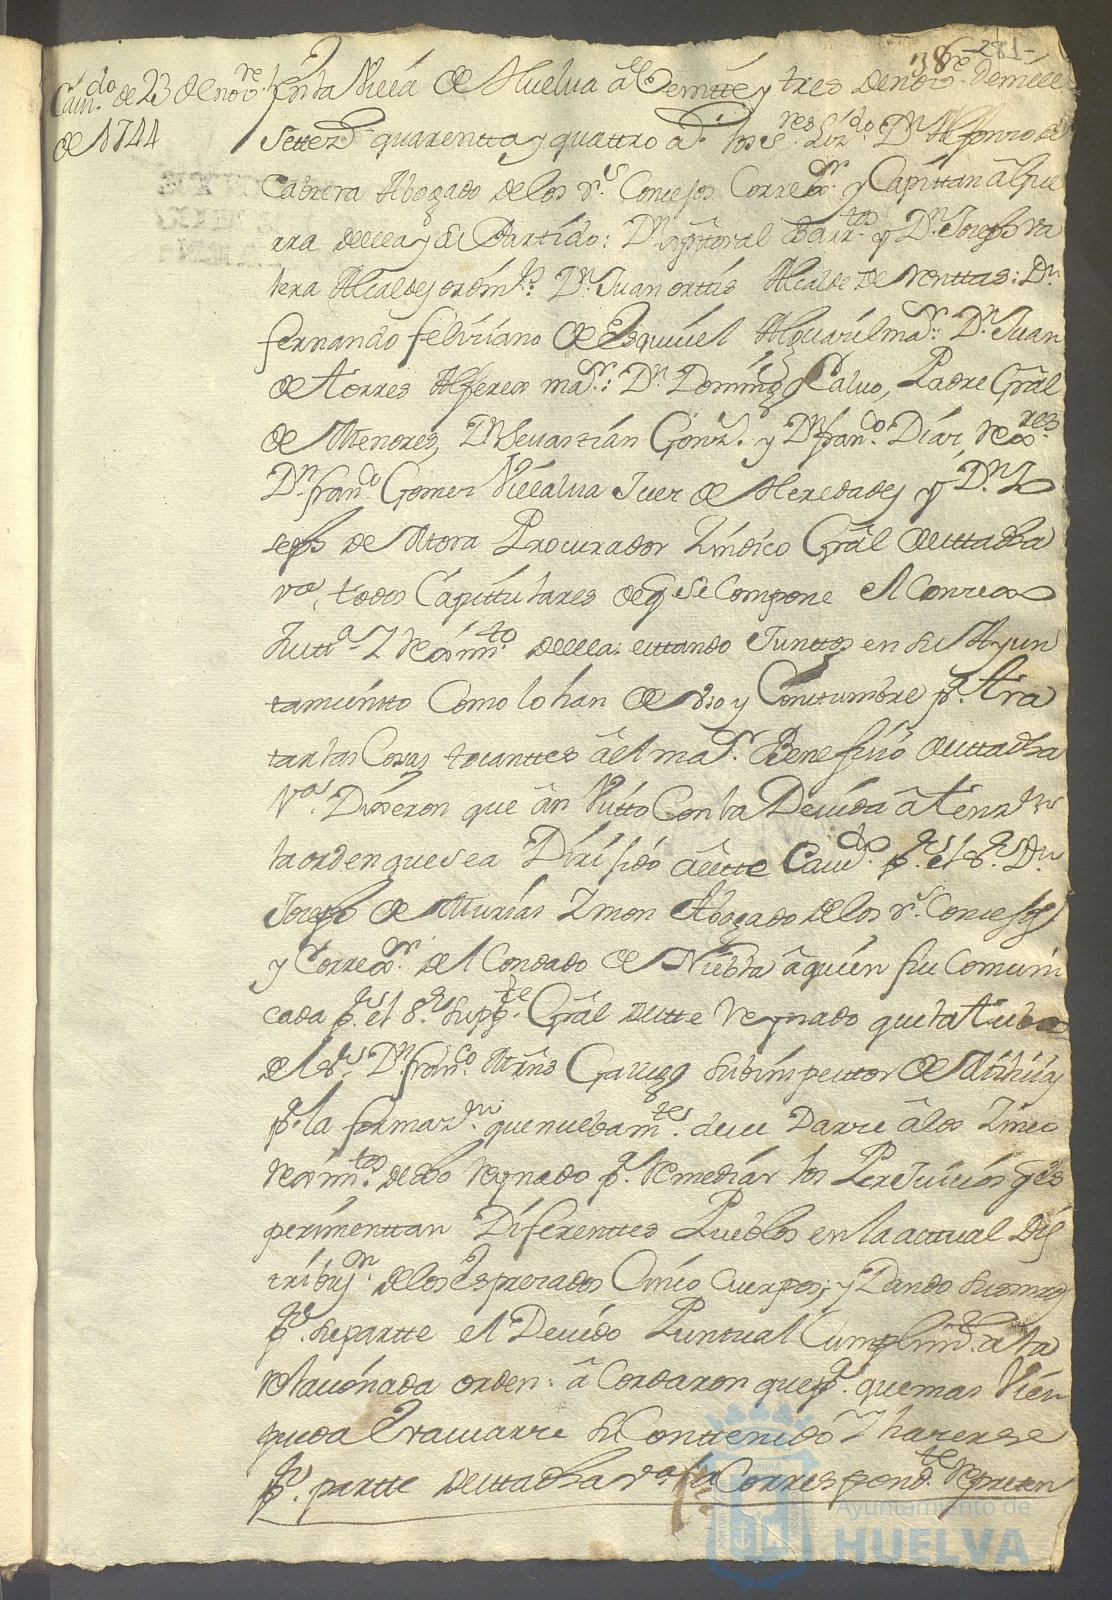 38 - 281 -
Cav.do de 23 de nov.re
de 1744
En la Villa de Huelva â Veintte y tres de nov.re de mill
settez.s quarentta y quattro a.s los S.res Liz.do D.n Alfonso de
Cabrera Abogado de los r.s Consejos Correx.or y Capittan â Gue
rra de ella y su Partido: D.n Xptoval Barr.tos y D.n Joseph Va
lera Alcaldes ordin.os D.n Juan ortis Alcalde de Renttas: D.n
fernando felisiano de Esquivel Alguasil ma.or D.n Juan
de Torres Alferes ma.or: D.n Domingo Calvo, Padre Gral
de Menores, D.n Sevastian Gonz.s y D.n fran.co Dias, Rex.res
D.n fran.co Gomes Villalva Jues de Heredades y D.n Jo
seph de Mora Procurador Sindico Gral de estta dha
v.a, todos Capittulares de q. se Compone el Consexo
Justt.a y Rexim.to de ella: esttando Junttos en su Ayun
tamientto Como lo han de uso y Costtumbre p.a tra
tar las Cosas tocanttes âel ma.or Benefisio de estta dha
V.a Dixeron que ân Vistto Con la Devida âtenz.on
la orden que sea Dirijido â estte Cavi.do p.r el S.r D.n
Joseph de Murias Simon Abogado de los r.s Consejos
y Correx.or del Condado de Niebla âquien fue Comuni
cada p.r el S.r Supp.te Gral de estte Reynado que la tubo
del S.r D.n fran.co Mrns Gallego Subinspecttor de Milisias
p.a la formaz.on que nuebam.te deve Darse âlos Sinco
Rexim.tos de dho Reynado p.a Remediar los Perjuisios q. es
perimenttan Diferenttes Pueblos en la acttual Dis
tribuz.on de los Espresados Cinco Cuerpos; y Dando su mrd
p.r su partte el Devido Punttual Cumplim.to a la
relasionada orden. â Cordaron que p.a que mas Vien
pueda Evacuarse su Conttenido y haserse
p.r partte de estta dha V.a la Correspond.te Represen
Ayuntamiento de
HUELVA